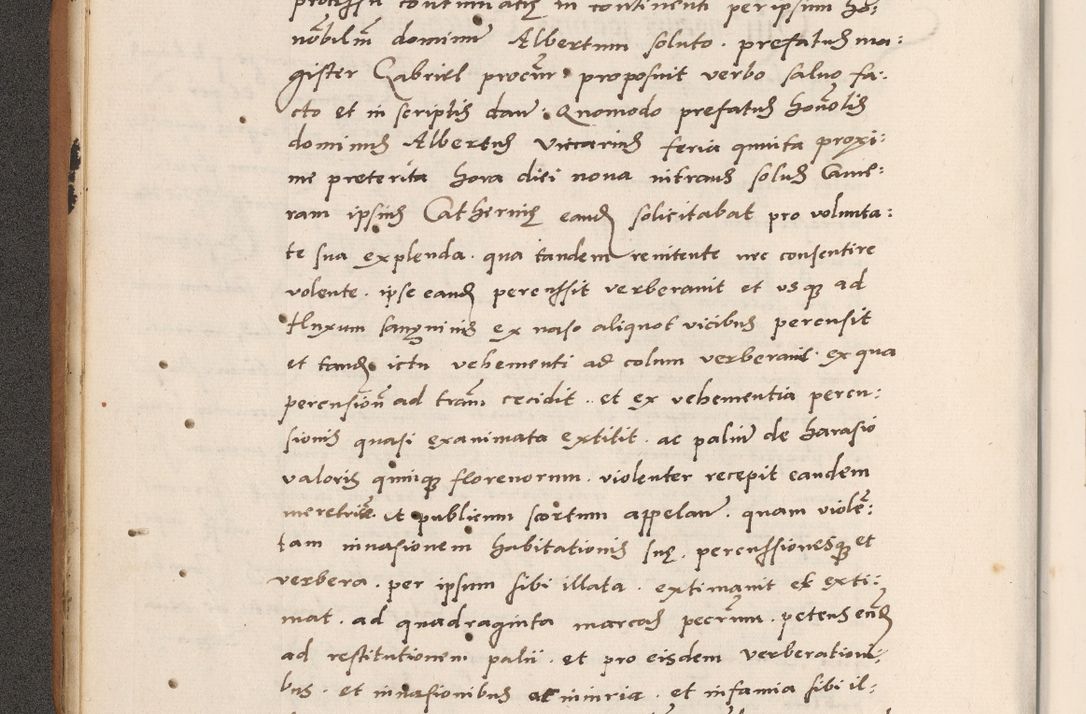 processu contumatie in continenti per ipsum ho:
nobilem dominum Albertum soluto. prefatus ma:
gister Gabriel procur proposuit verbo saluo fa:
cto et in scriptis daur. Quomodo prefatus honolis
dominus Albertus vicarius feria quinta proxi:
me preterita hora diei nona intrans solus came:
ram ipsius Catherine eand solicitabat pro volunta:
te sua explenda. qua tandem renitente nec consentire
volente. ipse eand percussit verberauit et usque ad
fluxum sanguinis ex naso aliquot vicibus percusit
et tande ictu vehementi ad colum verberauit. ex qua
percusion ad tram cecidit.. et ex vehementia percu:
sionis quasi exanimata extitit. ac palium de harasio
valoris quinque florenorum. violenter recepit eandem
meretrice. et publicum scortum appelaur. quam violen:
tam inuasionem habitationis sue. percussionesque et
verbera. per ipsum sibi illata. extimauit et exti:
mat. ad quadraginta marcas pecunm. petens eund
ad restitutionem palii. et pro eisdem verberationi:
bus. et inuasionibus ac iniuria. et infamia sibi il: